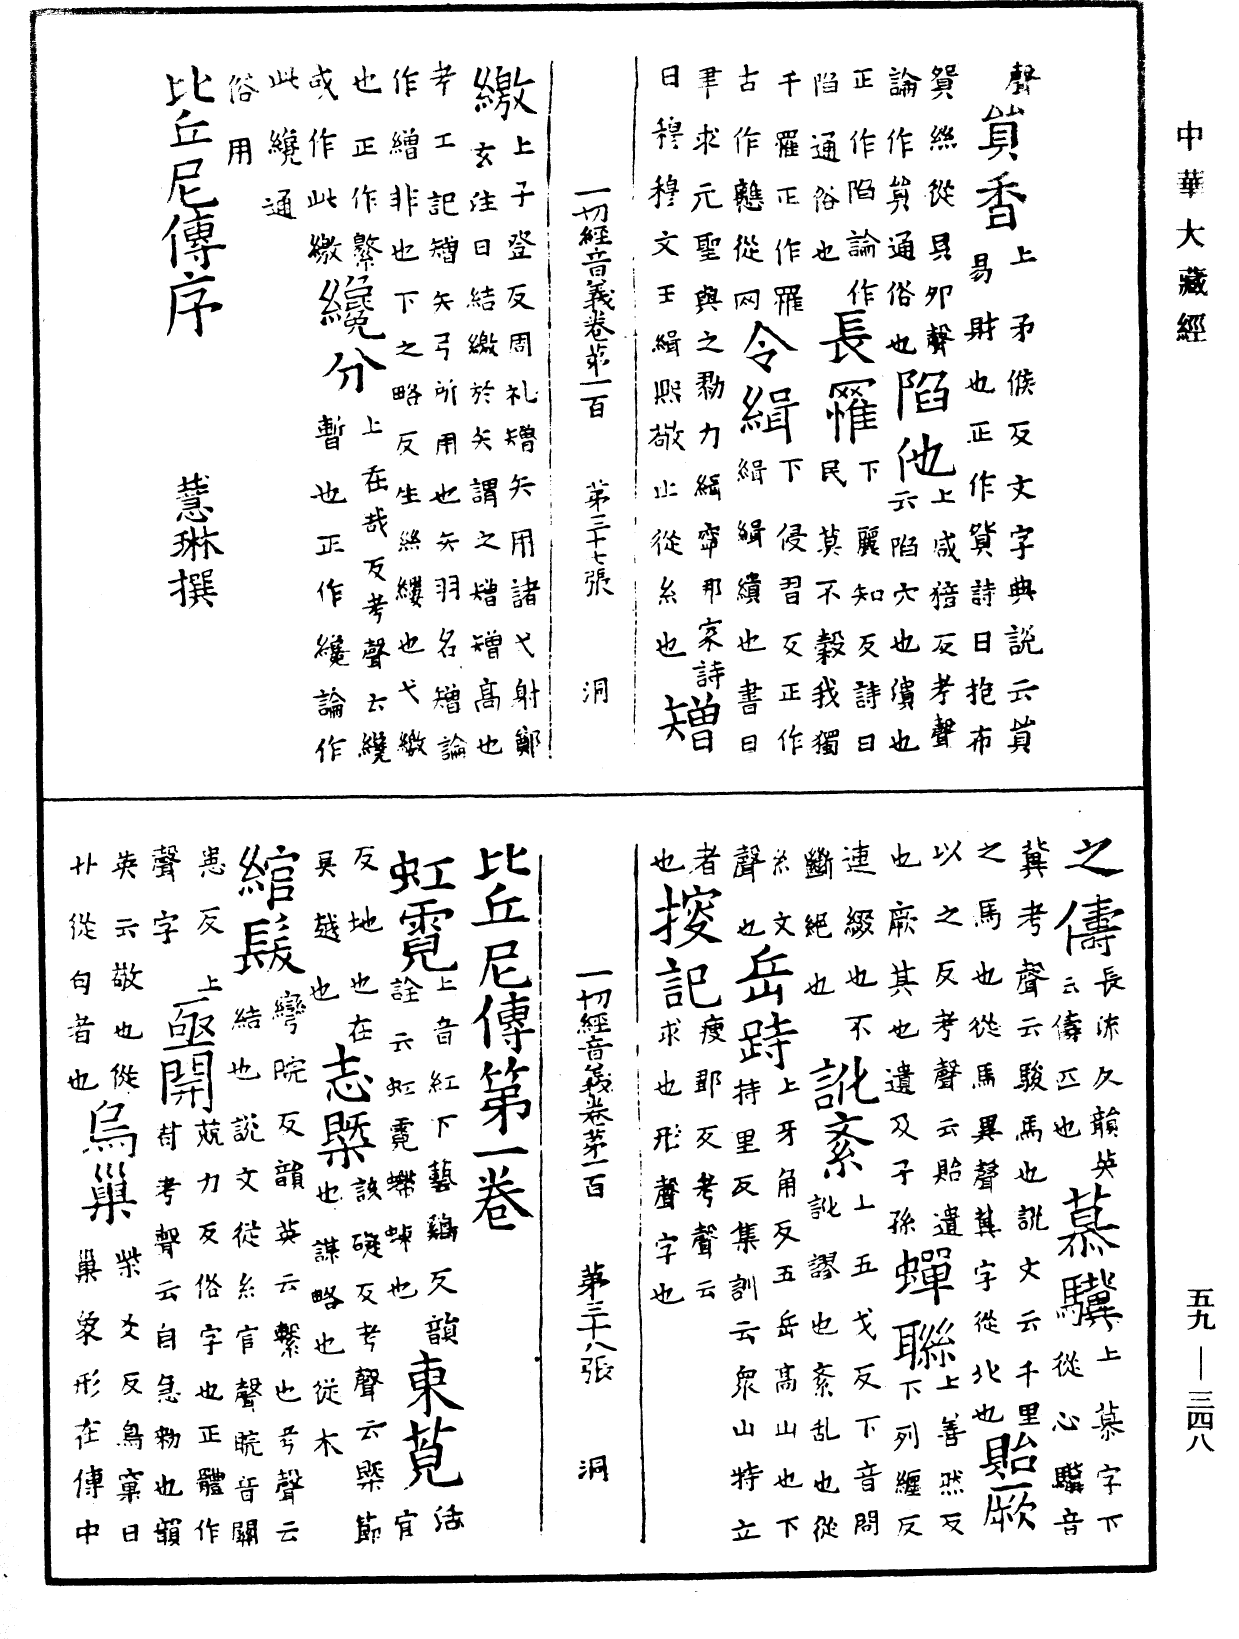 中華大藏經
聲貿香上矛候反文字典説云貿
易財也正作貿詩曰抱布
貿絲從貝卯聲陷他上咸猪反考聲
論作貿通俗也云陷穴也潰也
正作陷論作長罹下麗知反詩曰
陷通俗也民莫不穀我獨
千罹正作罹令緝下侵習反正作
古作戁從网緝緝績也書曰
聿求元聖與之勠力緝寧那家詩
曰穆穆文王緝熙敬止從糸也矰
一切經音義卷第一百　第三十七張　洞
繳上子登反周礼矰矢用諸弋射鄭
玄注曰結繳於矢謂之矰矰高也
考工記矰矢弓所用也矢羽名矰論
作繒非也下之略反生絲縷也弋繳
也正作繁纔分上在哉反考聲云纔
或作此繳暫也正作纔論作
此纔通
俗用
比丘尼傳序　慧琳撰
之儔長流久韻英云儔匹也慕驥上慕字下從心驥音
冀考聲云駿馬也說文云千里
之馬也從馬異聲冀字從北也貽厥
以之反考聲云貽遺也厥其也遺及子孫蟬聯上善然反下列纏反
連綴也不斷絕也訛紊上五戈反下音問訛謬也紊乱也從
糸文聲也岳跱上牙角反五岳高山也下持里反集訓云衆山特立
者也搜記瘦鄒反考聲云求也形聲字也
一切經音義卷第一百　第三十八張　洞
比丘尼傳第一卷
虹霓上音紅下藝雞反韻詮云虹霓螮蝀也東莞活官
反地也在吳越也志槩該礙反考聲云槩節也謀略也從木
綰髮彎院反韻英云繫也考聲云結也說文從糸官聲晥音關
患反上聲字亟開兢力反俗字也正體作苟考聲云自急勑也韻
英云敬也從廾從句者也烏巢柴爻反鳥窠曰巢象形在傳中
五九—三四八